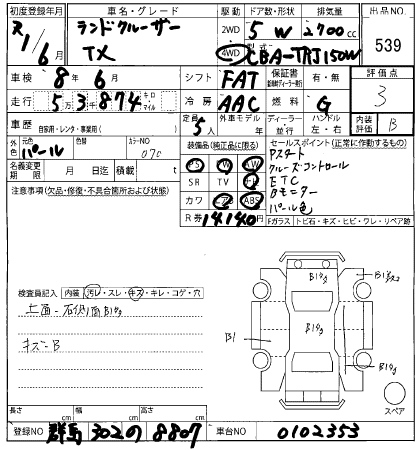 初度登録年月 車名・グレード 駆動 ドア数・形状 排気量 出品NO.
R1/6月 ランドクルーザー TX 2WD 4WD 5 W 2700cc 539
型式 CBA-TRJ150W
車検 8年6月 シフト FAT 保証書 有・無 評価点 3
走行 53,874 キロ マイル 冷房 AAC 燃料 G
車歴 自家用・レンタ・事業用( ) 定員 5人 外車モデル 年 ディーラー 並行 ハンドル 左・右 内装評価 B
外色 元色 パール 色替 カラーNO 070
名義変更期限 月 日迄 積載 t
装備品(純正品に限る)
PS PW
SR TV ナビ
カワ エアB ABS
R券 14140円
セールスポイント(正常に作動するもの)
Pスタート
クルーズコントロール
ETC
Bモニター
パール色
注意事項(欠品・修復・不具合箇所および状態)
Fガラス トビ石・キズ・ヒビ・ワレ・リペア跡
検査員記入 内装 汚レ・スレ・キズ・キレ・コゲ・穴
キズ-B
B1
スペア
長さ cm 幅 cm 高さ cm
登録NO 群馬 302 の 8807 車台NO 0102353